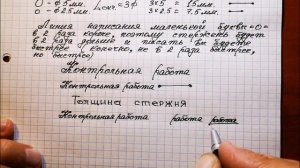 О - ф 5мм. Lокр.=πф 3х5 = 15мм.
О - ф 2,5мм. 3х2,5 = 7,5мм.
Линия написания маленькой буквы "О"
в 2 раза короче, поэтому стержень будет
в 2 раза дольше и писать Вы будете
быстрее (конечно, не в 2 раза быстрее,
но быстрее)
Контрольная работа
Контрольная работа
Толщина стержня
Контрольная работа работа работа